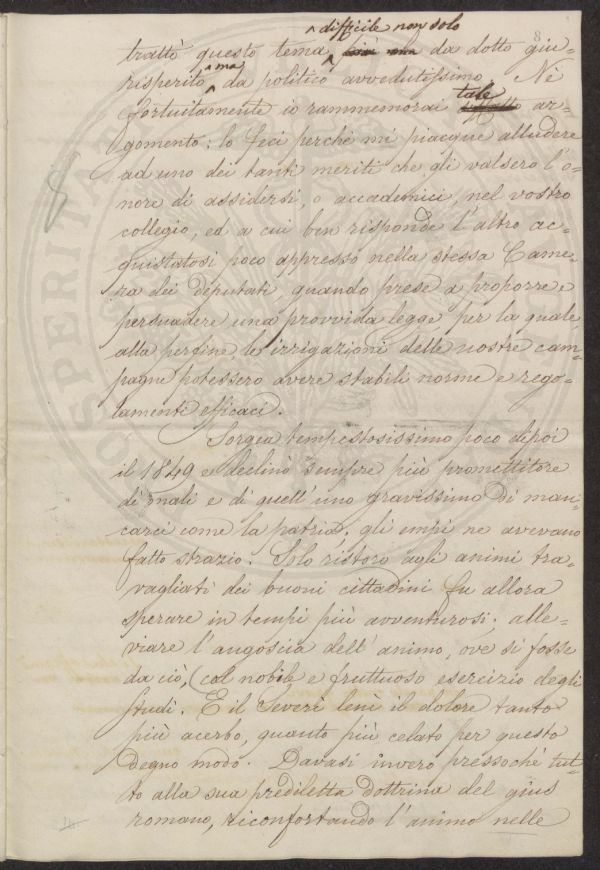 8
difficile non solo
trattò questo tema da dotto giu-
risperito ma da politico avvedutissimo. Nè
tale
fortuitamente io rammemorai ar-
gomento: lo feci perchè mi piacque alludere
ad uno dei tanti meriti che gli valsero l'o-
nore di assidersi, o accademici, nel vostro
collegio, ed a cui ben risponde l'altro ac-
quistatosi poco appresso nella stessa Came-
ra dei Deputati, quando prese a proporre e
persuadere una provvida legge per la quale
alla perfine le irrigazioni delle nostre cam-
pagne potessero avere stabili norme e rego-
lamenti efficaci.
Sorgea tempestosissimo poco dipoi
il 1849 e declinò sempre più promettitore
di mali e di quell'uno gravissimo di man-
carci come la patria; gli empi ne avevano
fatto strazio. Solo ristoro agli animi tra-
vagliati dei buoni cittadini fu allora
sperare in tempi più avventurosi; alle-
viare l'angoscia dell'animo, ove si fosse
da ciò, col nobile e fruttuoso esercizio degli
studi. E il Severi lenì il dolore tanto
più acerbo, quanto più celato per questo
degno modo. Davasi invero pressochè tut-
to alla sua prediletta dottrina del gius
romano, riconfortando l'animo nelle